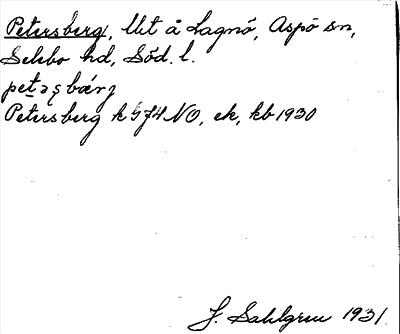 Petersberg, lht å Lagnö, Aspö sn,
Selebo hd, Söd. l.
Petersberg k 574 NO, ek, kb 1930
J. Sahlgren 1931